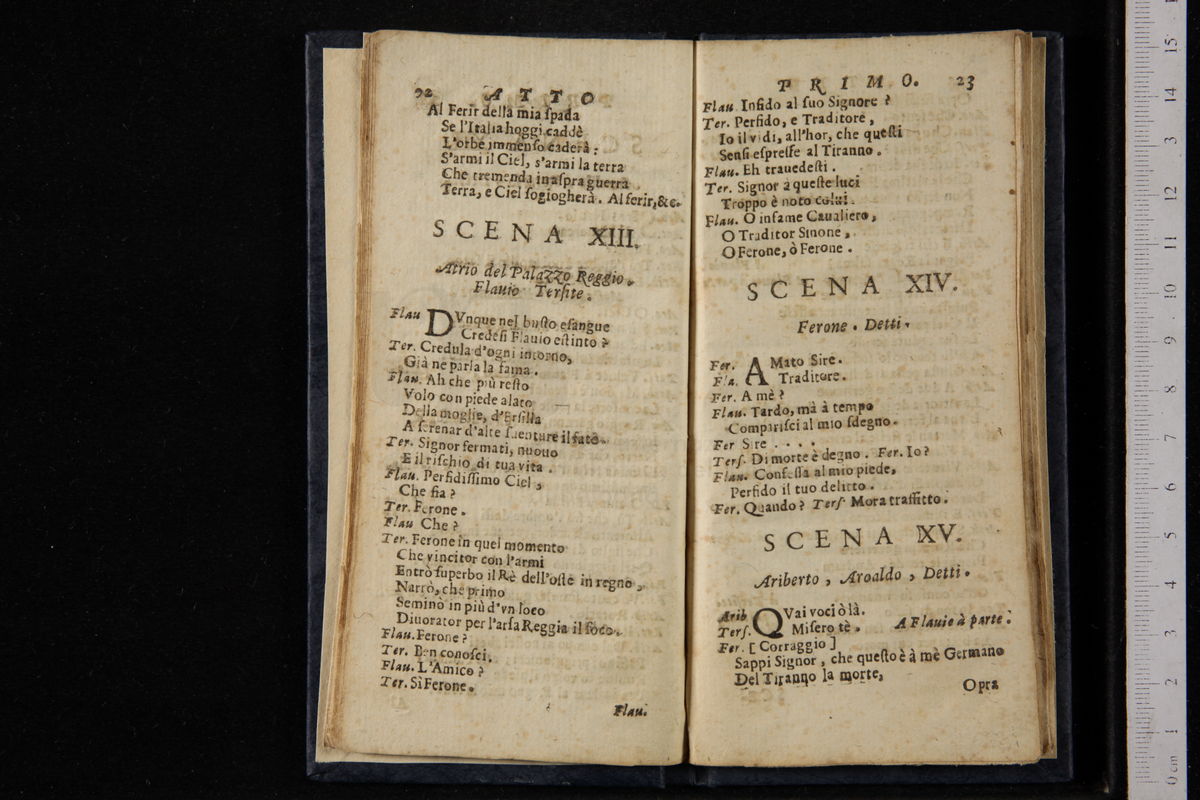 92 ATTO
Al Ferir della mia ſpada
Se l'Italia hoggi caddè
L'orbe immenſo caderà:
S'armi il Ciel, s'armi la terra
Che tremenda in aſpra guerra
Terra, e Ciel ſogiogherà. Al ferir,&c.
SCENA XIII.
Atrio del Palazzo Reggio.
Flauio Terſite.
Flau DVnque nel buſto eſangue
Credeſi Flauio eſtinto?
Ter. Credula d'ogni intorno,
Già ne parla la fama.
Flau. Ah che più reſto
Volo con piede alato
Della moglie, d'Erſilla
A ſerenar d'alte ſuenture il fato.
Ter. Signor fermati, nuouo
E il riſchio di tua vita.
Flau. Perfidiſſimo Ciel,
Che fia?
Ter. Ferone.
Flau Che?
Ter. Ferone in quel momento
Che vincitor con l'armi
Entrò ſuperbo il Rè dell'oſte in regno,
Narrò, che primo
Seminò in più d'vn loco
Diuorator per l'arſa Reggia il foco.
Flau. Ferone?
Ter. Ben conoſci.
Flau. L'Amico?
Ter. Sì Ferone.
Flau.
PRIMO. 23
Flau Infido al ſuo Signore?
Ter. Perfido, e Traditore,
Io il vidi, all'hor, che queſti
Senſi eſpreſſe al Tiranno.
Flau. Eh trauedeſti.
Ter. Signor à queſte luci
Troppo è noto colui.
Flau. O infame Caualiero,
O Traditor Sinone,
O Ferone, ò Ferone.
SCENA XIV.
Ferone. Detti.
Fer. AMato Sire.
Fla. Traditore.
Fer. A mè?
Flau. Tardo, mà à tempo
Compariſci al mio ſdegno.
Fer Sire . . . .
Terſ. Di morte è degno. Fer. Io?
Flau. Confeſſa al mio piede,
Perfido il tuo delitto.
Fer. Quando? Terſ. Mora traffitto.
SCENA XV.
Ariberto, Aroaldo, Detti.
Arib QVai voci ò là.
Terſ. Miſero tè. A Flauio à parte.
Fer. [Corraggio]
Sappi Signor, che queſto è à mè Germano
Del Tiranno la morte,
Opra